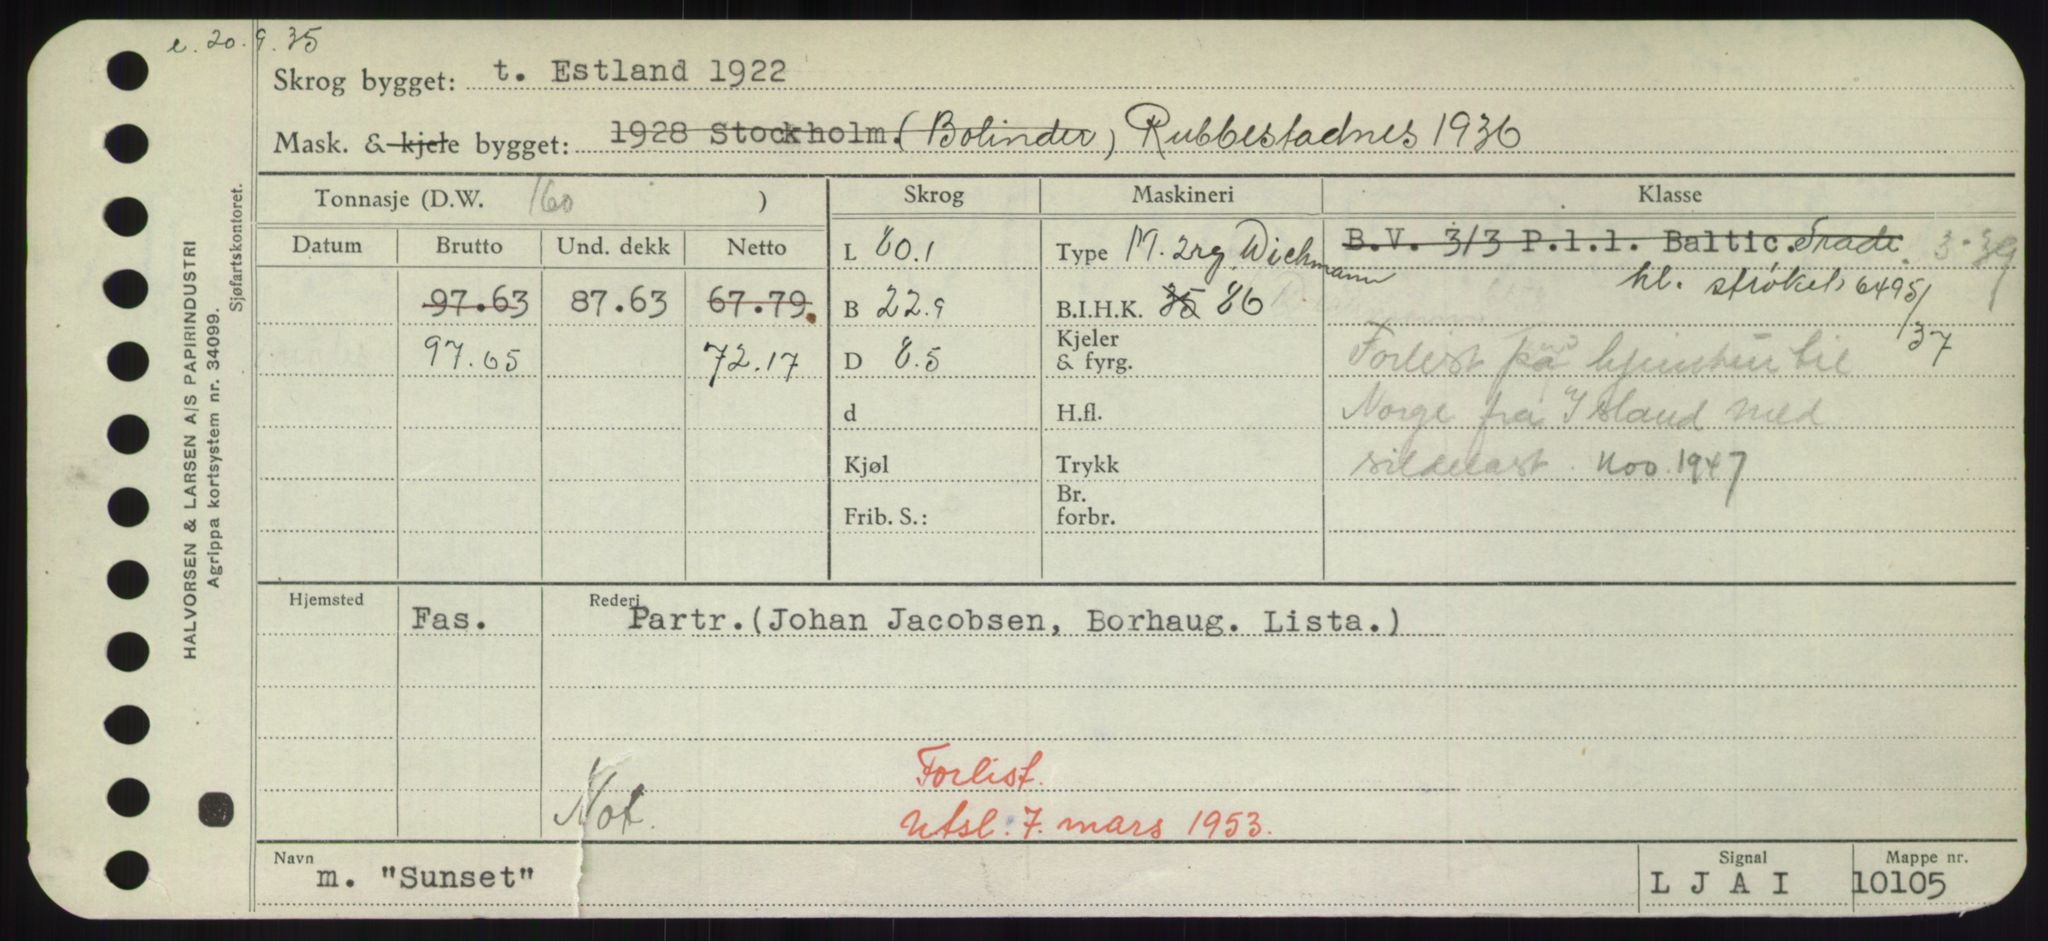 e. 20.9.35
Skrog bygget: t. Estland 1922
Mask. & kjele bygget: 1928 Stockholm. (Bolinder) Rubbestadnes 1936
Tonnasje (D.W. 160 )
Skrog
Maskineri
Klasse
Datum Brutto Und. dekk Netto
97.63 87.63 67.79.
97.65 72.17
L 80.1
B 22.9
D 8.5
d
Kjøl
Frib. S.:
Type M. 2rg. Wichmann
B.I.H.K. 35 86
Kjeler
& fyrg.
H.fl.
Trykk
Br.
forbr.
B.V. 3/3 P.l.l. Baltic. Trade. 3.39
kl. strøket 6495/
37
Forlist på hjemtur til
Norge fra Island med
sildelast. nov. 1947
Hjemsted
Rederi
Fas. Partr. (Johan Jacobsen, Borhaug. Lista.)
Not.
Forlist.
Utsl. 7. mars 1953.
Navn
m. "Sunset"
Signal
L J A I
Mappe nr.
10105
HALVORSEN & LARSEN A/S PAPIRINDUSTRI
Agrippa kortsystem nr. 34099.
Sjøfartskontoret.